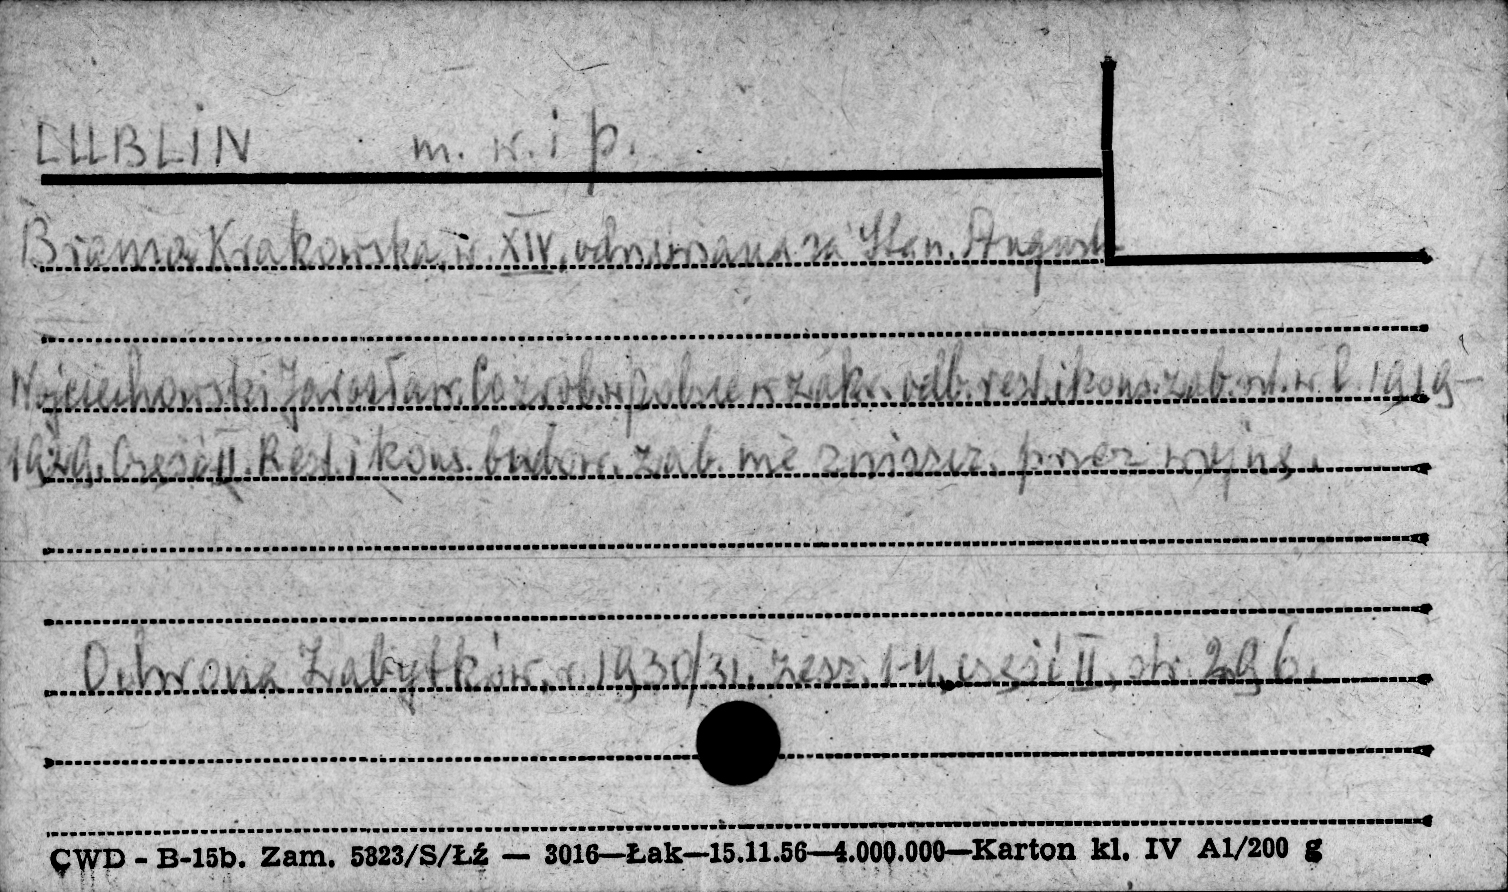 LUBLIN m. w. i p.
Brama Krakowska, w. XIV, odnawiana za Stan. Augusta
Wojciechowski Jarosław. Co zrob. w polsce w zakr. odb. rest. i kons. zab. szt. w l. 1919-
1929. Część II. Rest. i kons. budow. zab. nie zniszcz. przez wojnę.
Ochrona Zabytków, r. 1930/31, zesz. 1-4, część II, str. 296.
CWD - B-15b. Zam. 5823/S/Łź — 3016—Łak—15.11.56—4.000.000—Karton kl. IV A1/200 g